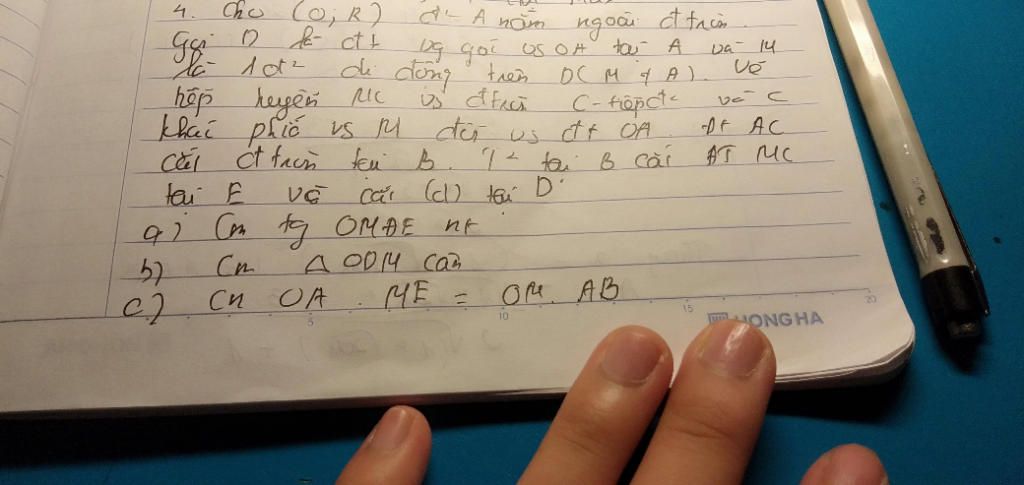 4. Cho (O; R) đ² A nằm ngoài đtròn.
Gọi D là đt vg góc vs OA tại A và M
là 1đ² di động trên D( M ≠ A). Vẽ
tiếp tuyến MC vs đtròn C-tiếpđ² và C
khác phía vs M đối vs đt OA. Đt AC
cắt đtròn tại B. T² tại B cắt MC
tại E và cắt (d) tại D.
a) Cm tg OMAE nt
b) Cm Δ ODM cân
c) Cm OA . ME = OM. AB
5 10 15 20
HONG HA